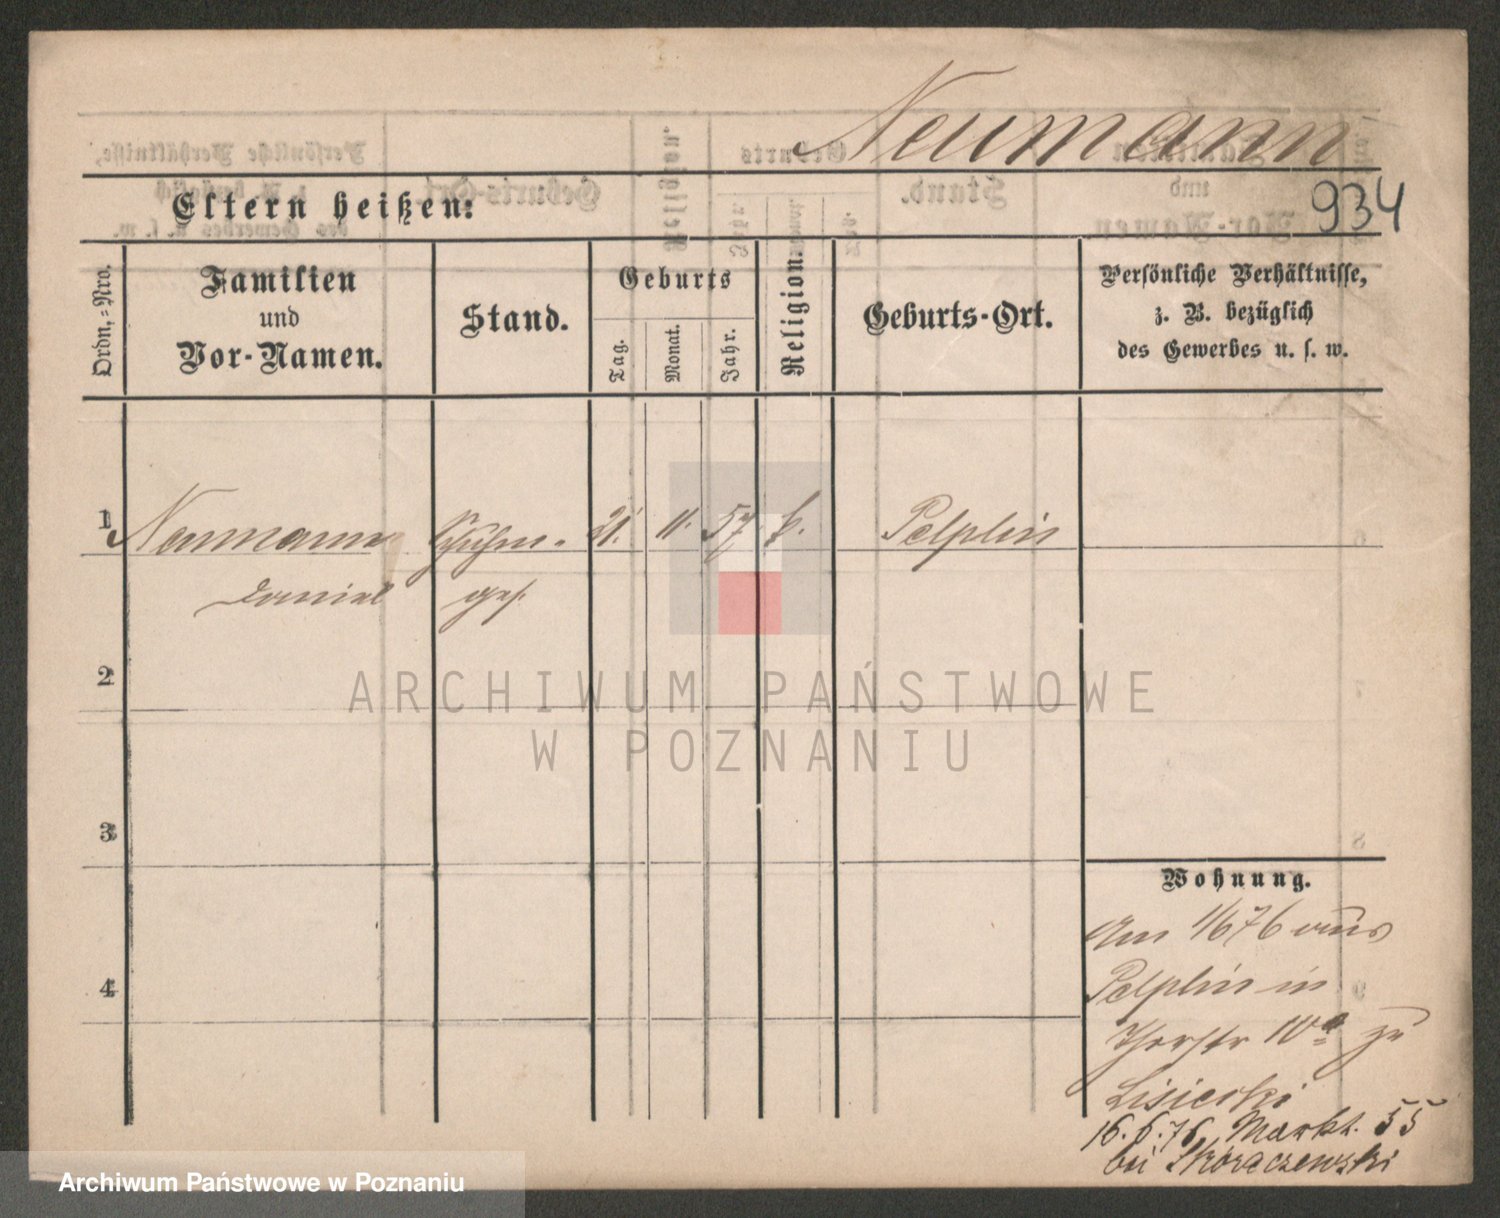 Neumann
934
Eltern heißen:
Ordn.-Nro.
Familien
und
Vor-Namen.
Stand.
Geburts
Tag.
Monat.
Jahr.
Religion.
Geburts-Ort.
Persönliche Verhältnisse,
z. B. bezüglich
des Gewerbes u. s. w.
1 Neumann Schuhm. 21. 11. 57 k. Pelplin
Daniel ges.
2
3
4
Wohnung.
Am 1/6 76 aus
Pelplin in
10a zu
Lisiecki
16.6.76 Markt. 55
bei Skoraczewski
ARCHIWUM PAŃSTWOWE
W POZNANIU
Archiwum Państwowe w Poznaniu